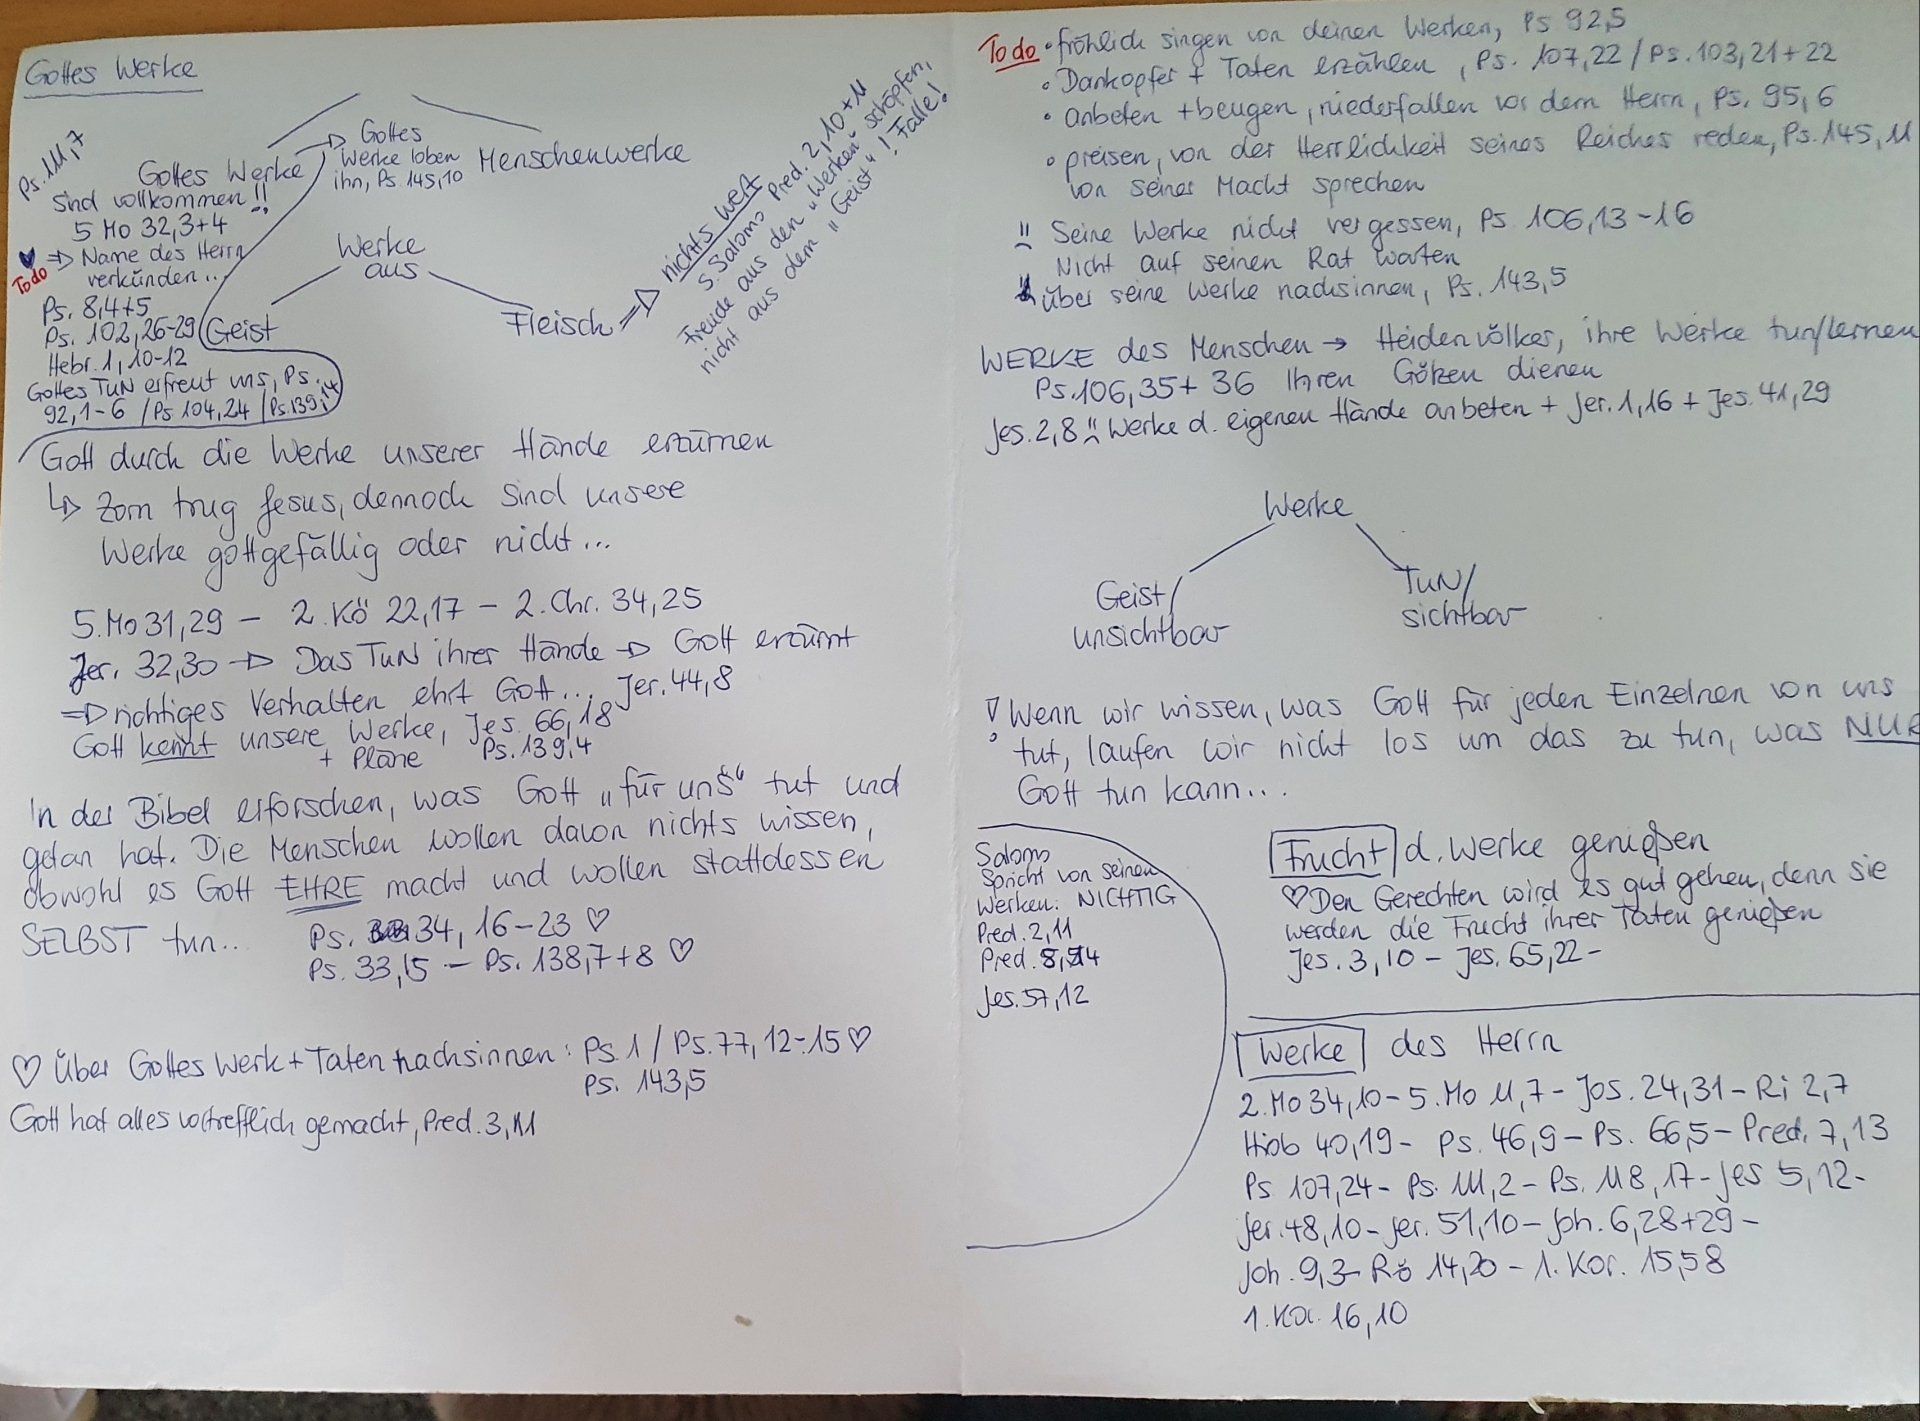 Gottes Werke
Ps. 111,7
Gottes Werke
sind vollkommen!!
5 Mo 32,3+4
⇒ Name des Herrn
Todo
verkünden...
Ps. 8,4+5
Ps. 102,26-29
Hebr. 1,10-12
Gottes TUN erfreut uns, Ps.
92,1-6 / Ps 104,24 / Ps. 139,14
Gottes
Werke loben
ihn, Ps 145,10
Menschenwerke
Werke
aus
Geist
Fleisch ⇒
nichts wert
s. Salomo Pred. 2,10+11
Freude aus den "Werken" schöpfen,
nicht aus dem "Geist"! Falle!
Gott durch die Werke unserer Hände erzürnen
↳ Zorn trug Jesus, dennoch sind unsere
Werke gottgefällig oder nicht...
5. Mo 31,29 - 2. Kö 22,17 - 2. Chr. 34,25
Jer. 32,30 → Das TUN ihrer Hände → Gott erzürnt
⇒ richtiges Verhalten ehrt Gott... Jer. 44,8
Gott kennt unsere Werke, Jes. 66,18
+ Pläne Ps. 139,4
In der Bibel erforschen, was Gott "für uns" tut und
getan hat. Die Menschen wollen davon nichts wissen,
obwohl es Gott EHRE macht und wollen stattdessen
SELBST tun...
Ps. 34, 16-23 ♡
Ps. 33,15 - Ps. 138,7+8 ♡
♡ Über Gottes Werk + Taten nachsinnen: Ps. 1 / Ps. 77, 12-15 ♡
Ps. 143,5
Gott hat alles vortrefflich gemacht, Pred. 3,11
Todo • fröhlich singen von deinen Werken, Ps 92,5
• Dankopfer + Taten erzählen, Ps. 107,22 / Ps. 103,21+22
• anbeten + beugen, niederfallen vor dem Herrn, Ps. 95,6
• preisen, von der Herrlichkeit seines Reiches reden, Ps. 145,11
von seiner Macht sprechen
Seine Werke nicht vergessen, Ps. 106,13-16
Nicht auf seinen Rat warten
über seine Werke nachsinnen, Ps. 143,5
WERKE des Menschen → Heidenvölker, ihre Werke tun/lernen
Ps. 106,35+36 Ihren Götzen dienen
Jes. 2,8 Werke d. eigenen Hände anbeten + Jer. 1,16 + Jes. 41,29
Werke
Geist/
unsichtbar
TUN/
sichtbar
! Wenn wir wissen, was Gott für jeden Einzelnen von uns
tut, laufen wir nicht los um das zu tun, was NUR
Gott tun kann...
Salomo
Spricht von seinen
Werken: NICHTIG
Pred. 2,11
Pred. 8,14
Jes. 57,12
Frucht d. Werke genießen
♡ Den Gerechten wird es gut gehen, denn sie
werden die Frucht ihrer Taten genießen
Jes. 3,10 - Jes. 65,22-
Werke des Herrn
2. Mo 34,10 - 5. Mo 11,7 - Jos. 24,31 - Ri 2,7
Hiob 40,19 - Ps. 46,9 - Ps. 66,5 - Pred. 7,13
Ps 107,24 - Ps. 111,2 - Ps. 118,17 - Jes 5,12-
Jer. 48,10 - Jer. 51,10 - Joh. 6,28+29 -
Joh. 9,3 - Rö 14,20 - 1. Kor. 15,58
1. Kor. 16,10